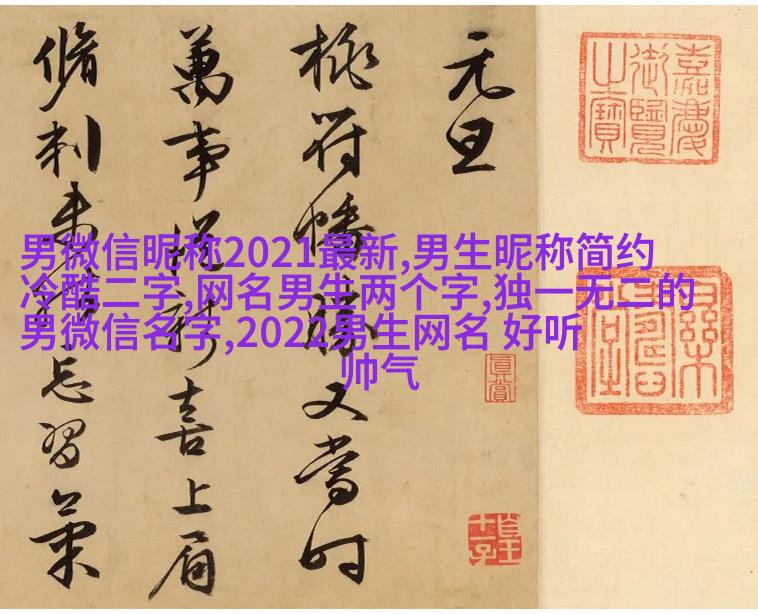 元旦
桃符幡勝又當時
萬事從新喜上眉
脩刺未能忘習
嘉慶御覽之寶
男微信昵称2021最新,男生昵称简约
冷酷二字,网名男生两个字,独一无二的
男微信名字,2022男生网名 好听
帅气